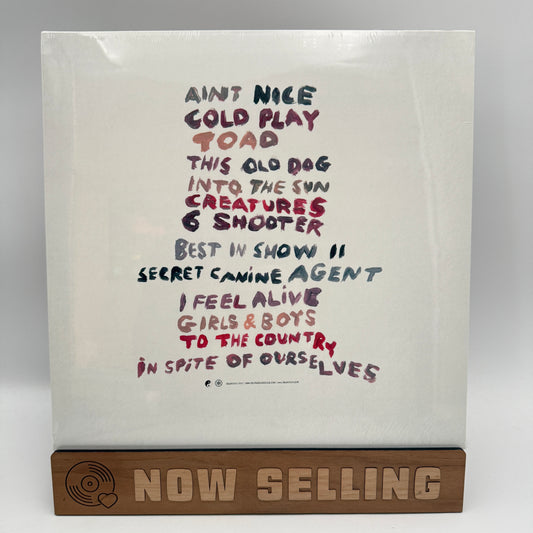 AINT NICE
COLD PLAY
TOAD
THIS OLD DOG
INTO THE SUN
CREATURES
6 SHOOTER
BEST IN SHOW II
SECRET CANINE AGENT
I FEEL ALIVE
GIRLS & BOYS
TO THE COUNTRY
IN SPITE OF OURSELVES
NOW SELLING